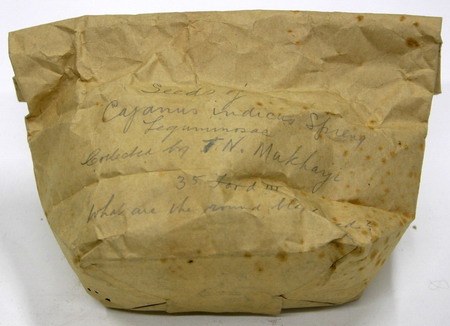 Seeds of
Cajanus indicus Spreng
Leguminosae
Collected by T. N. Mukharji
What are the round